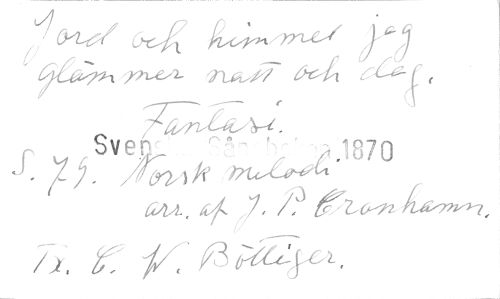 Jord och himmel jag
glömmer natt och dag.
Fantasi.
Svenska Sångboken 1870
S. 79. Norsk melodi
arr. af J. P. Cronhamn.
Tx. C. W. Böttiger.